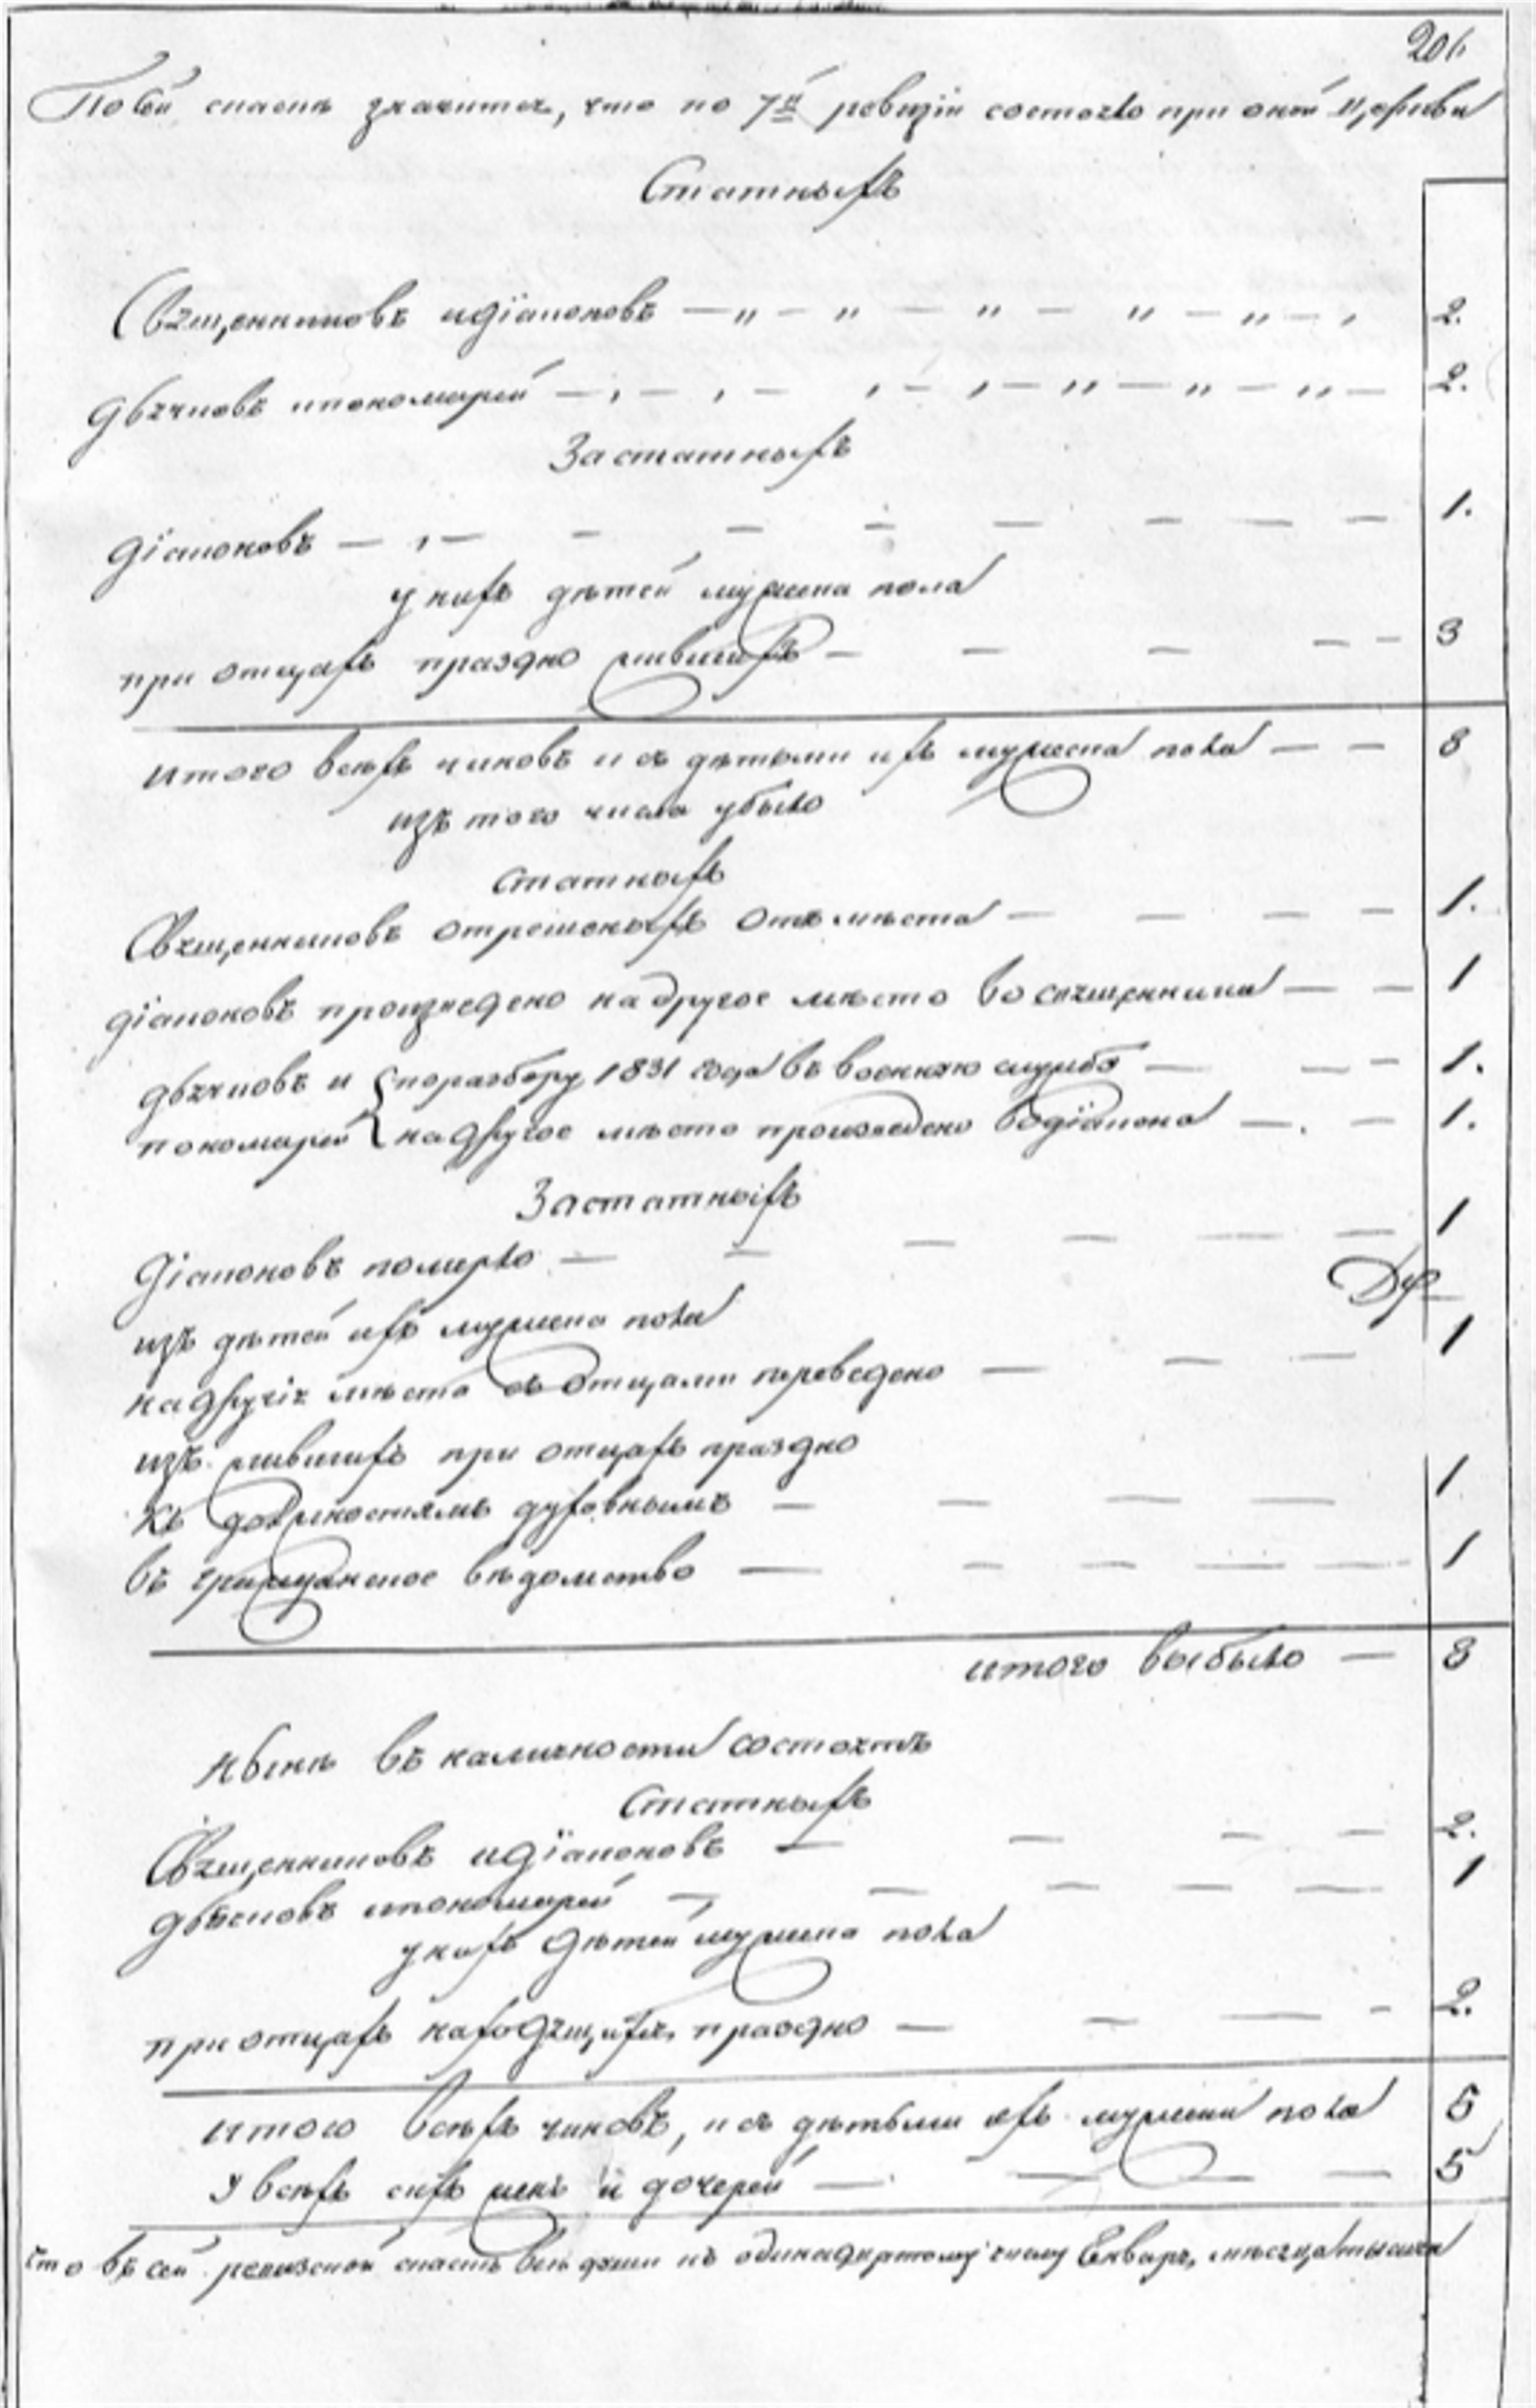 206
По сей скаске значитca, что по 7й ревизiи состояло при оной церкви
Статныхъ
Священниковъ и дiаконовъ — „ — „ — „ — „ — „ — , 2.
дьячковъ и пономарей — , — , — , — , — „ — „ — „ — 2.
Застатныхъ
дiаконовъ — , — — — — — — — — 1.
у нихъ дѣтей мужеска пола
при отцахъ праздно жившихъ — — — — — 3
итого всѣхъ чиновъ и съ дѣтьми ихъ мужеска пола — — 8
изъ того числа убыло
статныхъ
Священниковъ отрешеныхъ отъ мѣста — — — — 1.
дiаконовъ произведено на другое мѣсто во священника — — 1
дьячковъ и { по разбору 1831 года въ военную службу — — — 1.
пономарей { на другое мѣсто произведено во дiакона — . — 1.
Застатныхъ
дiаконовъ померло — — — — — — 1
изъ дѣтей ихъ мужеска пола
на другiя мѣста съ отцами переведено — — — 1
изъ жившихъ при отцахъ праздно
къ должностямъ духовнымъ — — — — 1
въ гражданское вѣдомство — — — — — 1
итого выбыло — 8
нынѣ въ наличности состоятъ
статныхъ
Священниковъ и дiаконовъ — — — — 2.
дьячковъ и пономарей — — — — — 1
у нихъ дѣтей мужеска пола
при отцахъ находящихся праздно — — — — 2.
итого всѣхъ чиновъ, и съ дѣтьми ихъ мужеска пола 5
У всѣхъ сихъ женъ и дочерей — — — — 5
что въ сей ревизской скаскѣ все души къ одинадцатому числу Енваря, мѣсяца тысяча